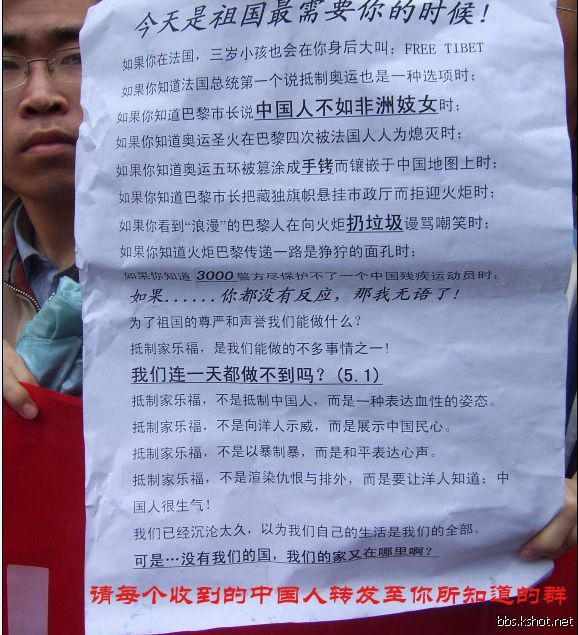 今天是祖国最需要你的时候!
如果你在法国，三岁小孩也会在你身后大叫：FREE TIBET
如果你知道法国总统第一个说抵制奥运也是一种选项时；
如果你知道巴黎市长说中国人不如非洲妓女时；
如果你知道奥运圣火在巴黎四次被法国人人为熄灭时；
如果你知道奥运五环被篡涂成手铐而镶嵌于中国地图上时；
如果你知道巴黎市长把藏独旗帜悬挂市政厅而拒迎火炬时；
如果你看到“浪漫”的巴黎人在向火炬扔垃圾谩骂嘲笑时；
如果你知道火炬巴黎传递一路是狰狞的面孔时；
如果你知道 3000 警方尽保护不了一个中国残疾运动员时；
如果......你都没有反应，那我无语了!
为了祖国的尊严和声誉我们能做什么？
抵制家乐福，是我们能做的不多事情之一！
我们连一天都做不到吗？(5.1)
抵制家乐福，不是抵制中国人，而是一种表达血性的姿态。
抵制家乐福，不是向洋人示威，而是展示中国民心。
抵制家乐福，不是以暴制暴，而是和平表达心声。
抵制家乐福，不是渲染仇恨与排外，而是要让洋人知道：中
国人很生气！
我们已经沉沦太久，以为我们自己的生活是我们的全部。
可是…没有我们的国，我们的家又在哪里啊？
请每个收到的中国人转发至你所知道的群
bbs.kshot.net